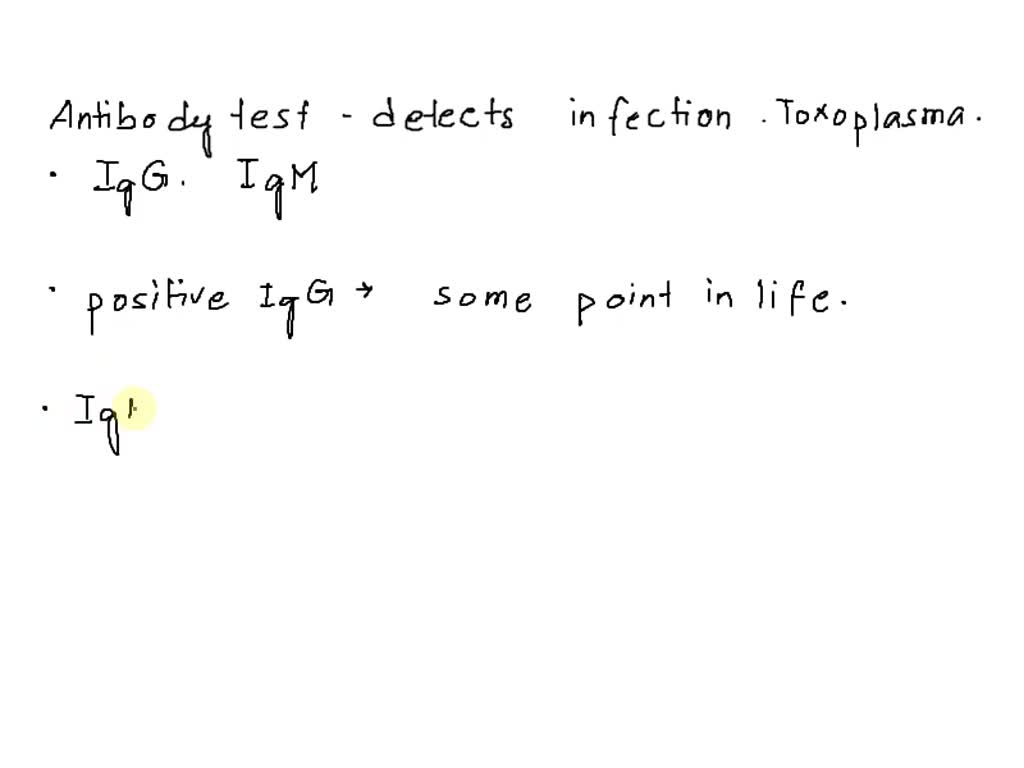 Antibody test - detects infection . Toxoplasma.
· IgG. IgM
· positive IgG → some point in life.
· Ig